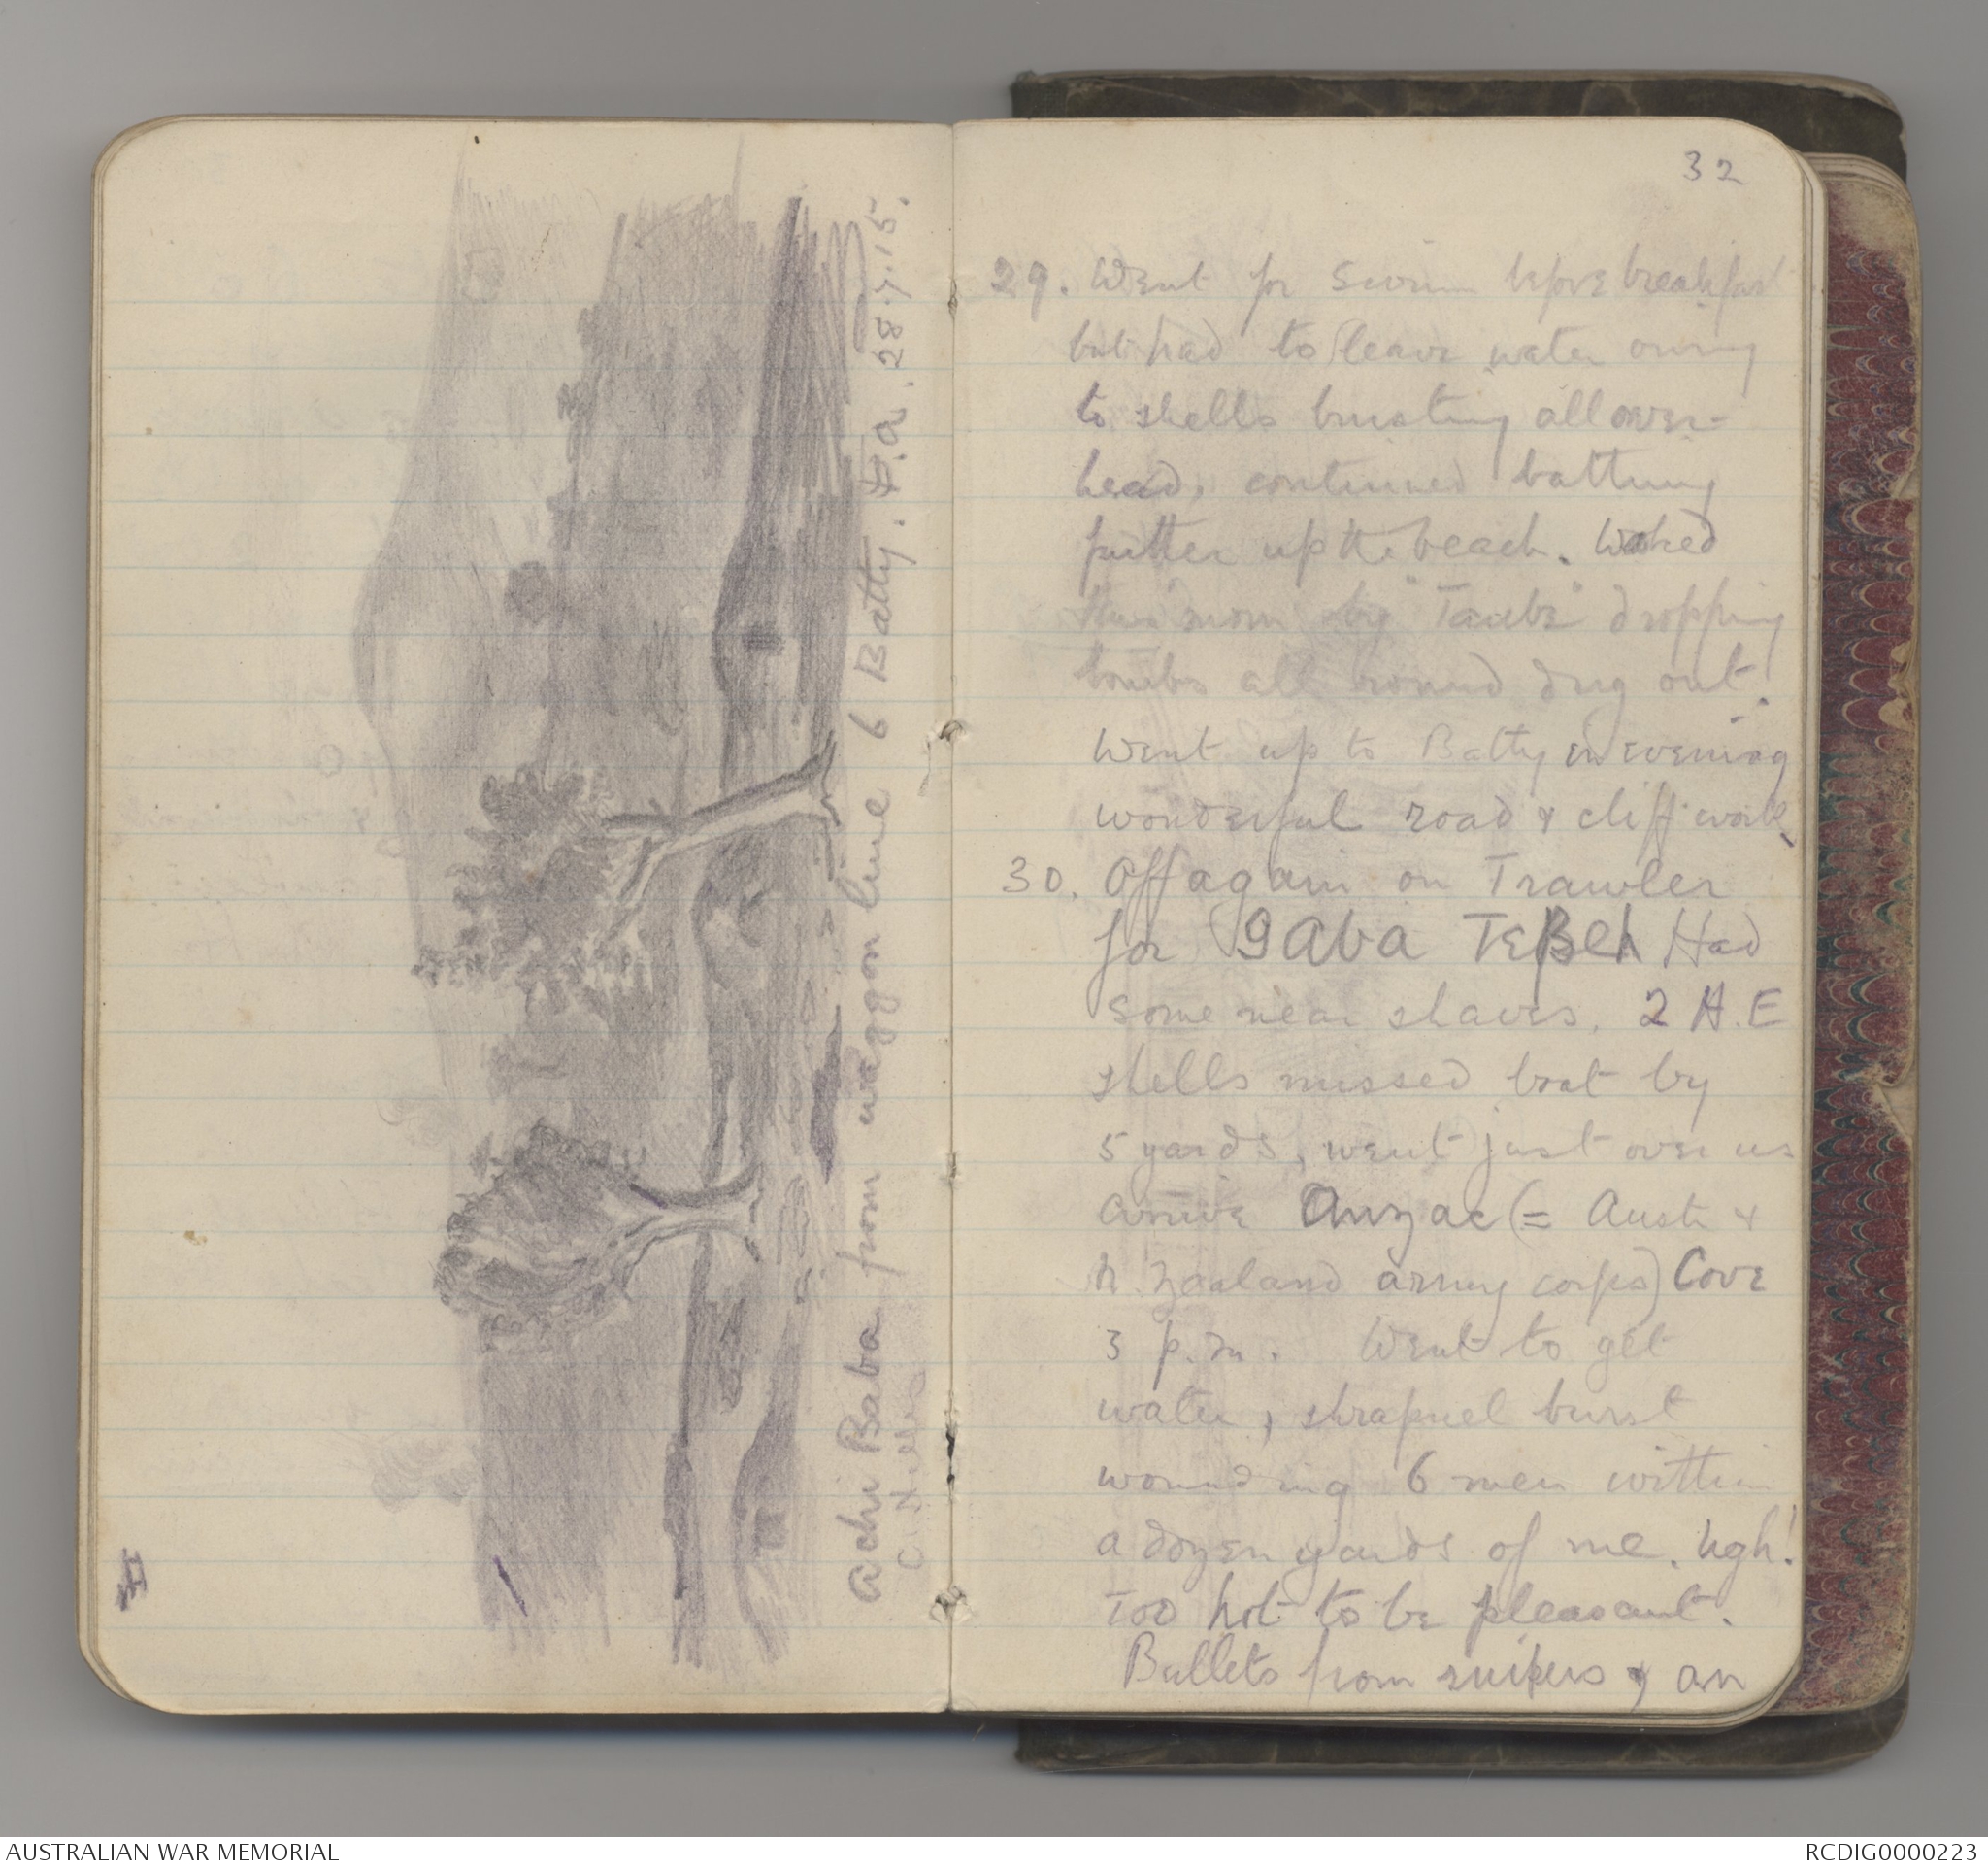 Achi Baba from waggon line 6 Batty. F.A. 28.7.15.
32
29. Went for swim before breakfast
but had to leave water owing
to shells bursting all over-
head, continued bathing
further up the beach. Waked
this morn by "Taube" dropping
bombs all round dug out.
Went up to Batty in evening
wonderful road & cliff work
30. Off again on Trawler
for Gaba Tepeh Had
some near shaves. 2 H.E
shells missed boat by
5 yards, went just over us
Arrive Anzac (= Austr &
N. Zealand army corps) Cove
3 p.m. Went to get
water, shrapnel burst
wounding 6 men within
a dozen yards of me. Ugh!
Too hot to be pleasant.
Bullets from snipers & an
AUSTRALIAN WAR MEMORIAL
RCDIG0000223